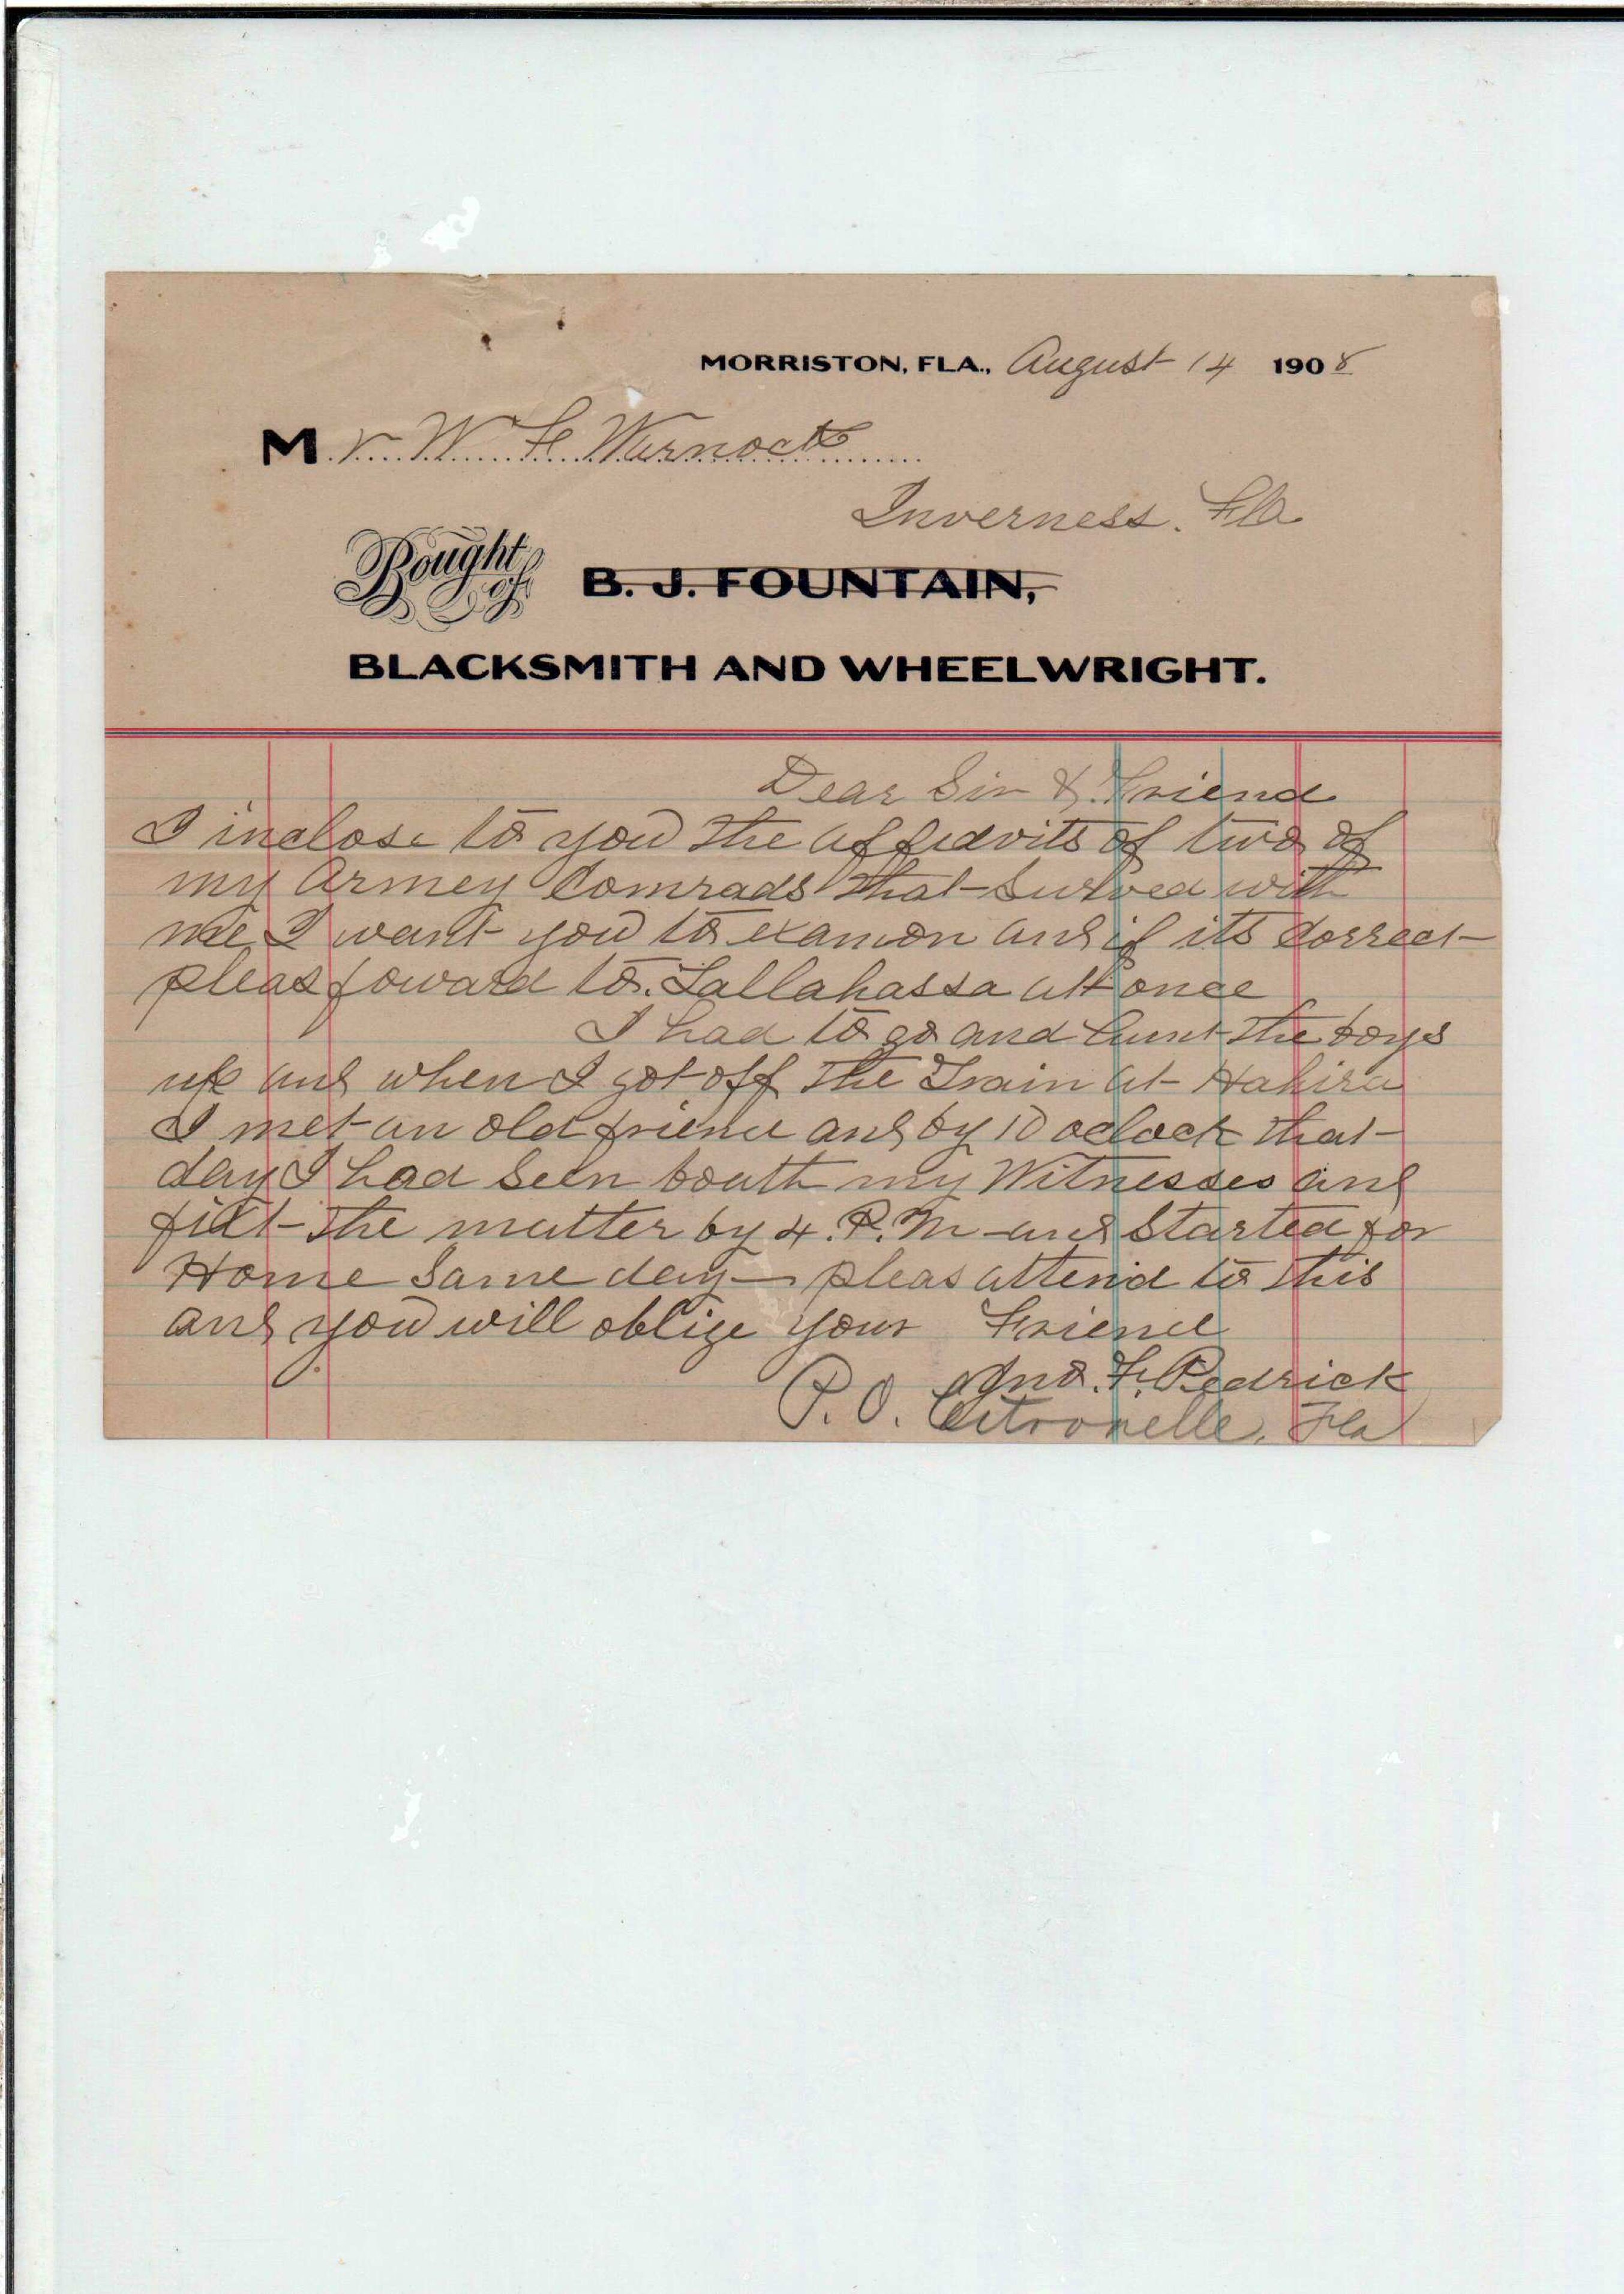 MORRISTON, FLA., August 14 1908
Mr W. F. Warnock
Inverness. Fla
Bought of B. J. FOUNTAIN,
BLACKSMITH AND WHEELWRIGHT.
Dear Sir & Friend
I inclose to you the affedvits of two of
my Armey Comrads that Surved with
me, I want you to examon and if its Correct
pleas foward to. Tallahassa att once
I had to go and hunt the boys
up and when I got off the Train at Hahira
I met an old friend and by 10 oclock that
day I had Seen bouth my Witnesses and
fixt the matter by 4. P. M and Started for
Home Same day pleas attend to this
and you will oblige your Friend
Jno. F. Pedrick
P. O. Citronelle, Fla